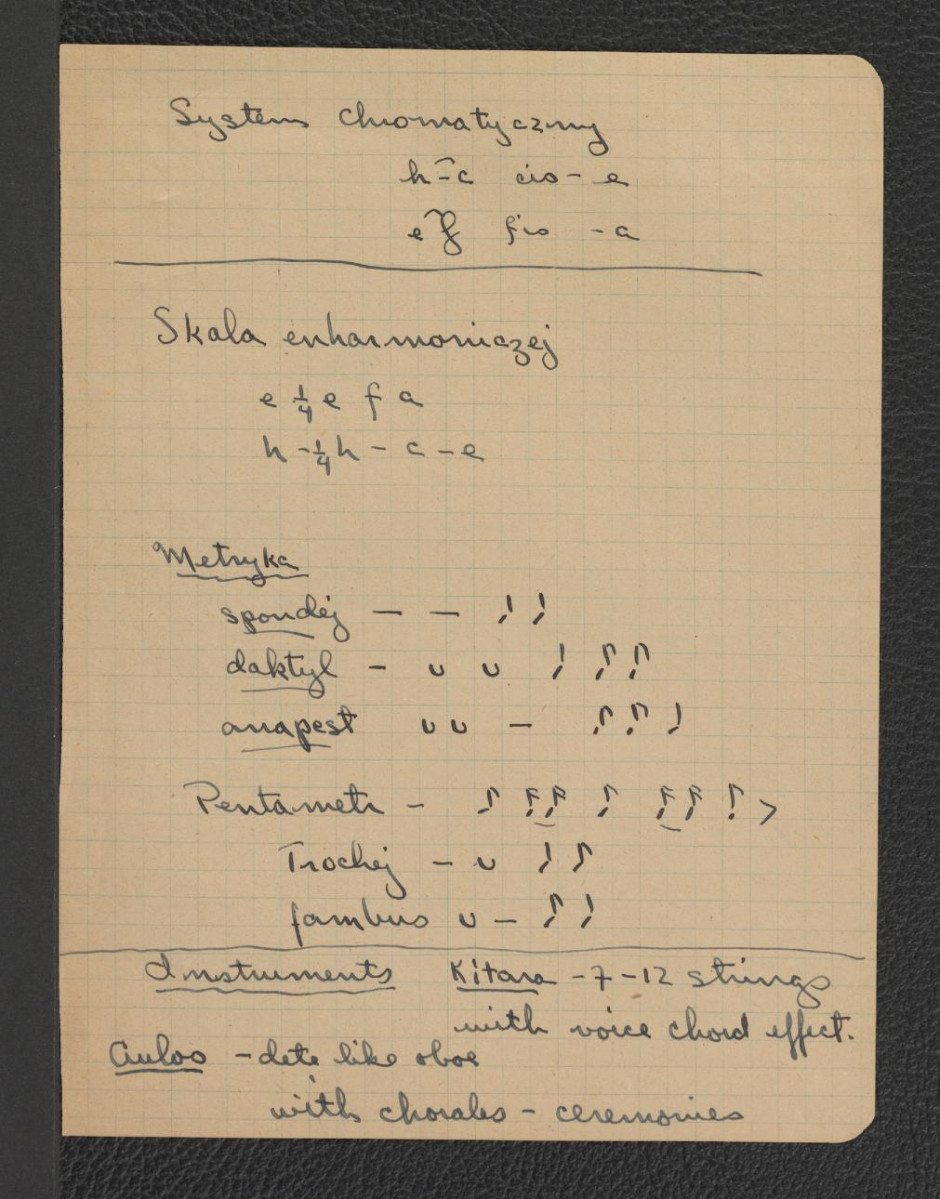 System chromatyczny
h-c cis - e
e f fis - a
Skala enharmoniczej
e 1/4 e f a
h - 1/4 h - c - e
Metryka
spondej — — ♩ ♩
daktyl - ∪ ∪ ♩ ♪ ♪
anapest ∪ ∪ — ♪ ♪ ♩
Pentametr -
Trochej - ∪ ♩ ♪
jambus ∪ - ♪ ♩
Instruments Kitara - 7 - 12 strings
with voice chord effect.
Aulos - dete like oboe
with chorales - ceremonies